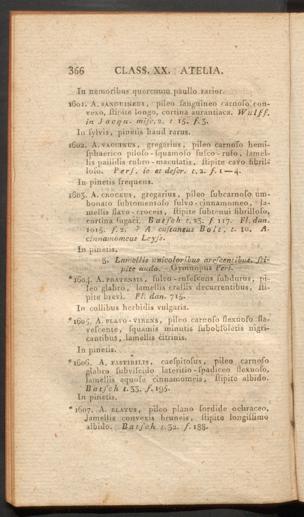 366 CLASS. XX. ATELIA.
In nemoribus quercuum paullo rarior.
1601. A. SANGUINEUS, pileo sanguineo carnoso con-
vexo, stipite longo, cortina aurantiaca. Wulff.
in Jacqu. misc. 2. t. 15. f. 3.
In sylvis, pinetis haud rarus.
1602. A. VACCINUS, gregarius, pileo carnoso hemi-
sphaerico piloso-squamoso fusco-rufo, lamel-
lis pallidis rubro-maculatis, stipite cavo fibril-
loso. Pers. ic et descr. t. 2. f. 1—4.
In pinetis frequens.
1603. A. CROCEUS, gregarius, pileo subcarnoso um-
bonato subtomentoso fulvo-cinnamomeo, la-
mellis flavo-croceis, stipite subtenui fibrilloso,
cortina fugaci. Batsch t. 23. f. 117. Fl. dan.
1015. f. 2. A castaneus Bolt. t. 10. A.
cinnamomeus Leyss.
In pinetis.
Lamellis unicoloribus arescentibus, sti-
pite nudo. Gymnopus Pers.
*1604. A. PRATENSIS, fulvo-rufescens subdurus, pi-
leo glabro, lamellis crassis decurrentibus, sti-
pite brevi. Fl. dan. 715.
In collibus herbidis vulgaris.
*1605. A. FLAVO-VIRENS, pileo carnoso flexuoso fla-
vescente, squamis minutis subobsoletis nigri-
cantibus, lamellis citrinis.
In pinetis.
*1606. A. FASTIBILIS, caespitosus, pileo carnoso
glabro subviscido lateritio-spadiceo flexuoso,
lamellis aquose cinnamomeis, stipite albido.
Batsch t. 33. f. 195.
In pinetis.
*1607. A. ELATUS, pileo plano sordide ochraceo,
lamellis convexis bruneis, stipite longissimo
albido. Batsch t. 32. f. 188.